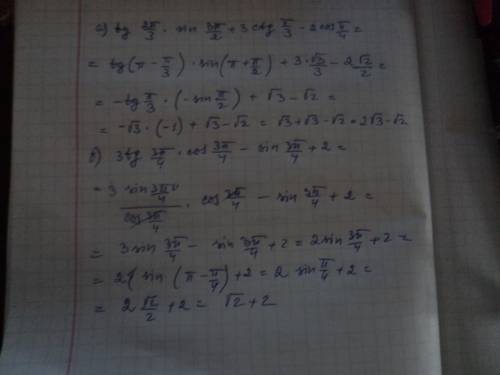 a) tg 2π/3 · sin 3π/2 + 3 ctg π/3 - 2 cos π/4 =
= tg(π - π/3) · sin(π + π/2) + 3·√3/3 - 2√2/2 =
= - tg π/3 · (- sin π/2) + √3 - √2 =
= -√3 · (-1) + √3 - √2 = √3 + √3 - √2 = 2√3 - √2
б) 3 tg 3π/4 · cos 3π/4 - sin 3π/4 + 2 =
= 3 sin 3π/4 / cos 3π/4 · cos 3π/4 - sin 3π/4 + 2 =
= 3 sin 3π/4 - sin 3π/4 + 2 = 2 sin 3π/4 + 2 =
= 2( sin (π - π/4) + 2 = 2 sin π/4 + 2 =
= 2 √2/2 + 2 = √2 + 2